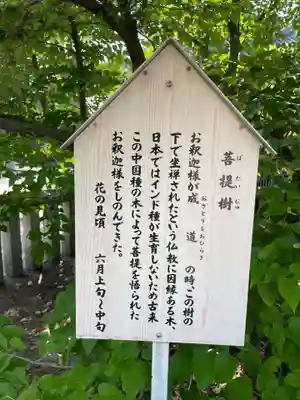 菩提樹
ぼだいじゅ
お釈迦様が成道の時この樹の
おさとりをおひらき
下で坐禅されたという仏教に因縁ある木、
日本ではインド種が生育しないため古来
この中国種の木によって菩提を悟られた
お釈迦様をしのんできた。
花の見頃 六月上旬～中旬